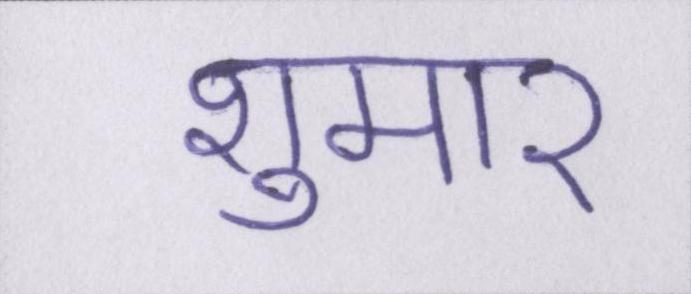 शुमार